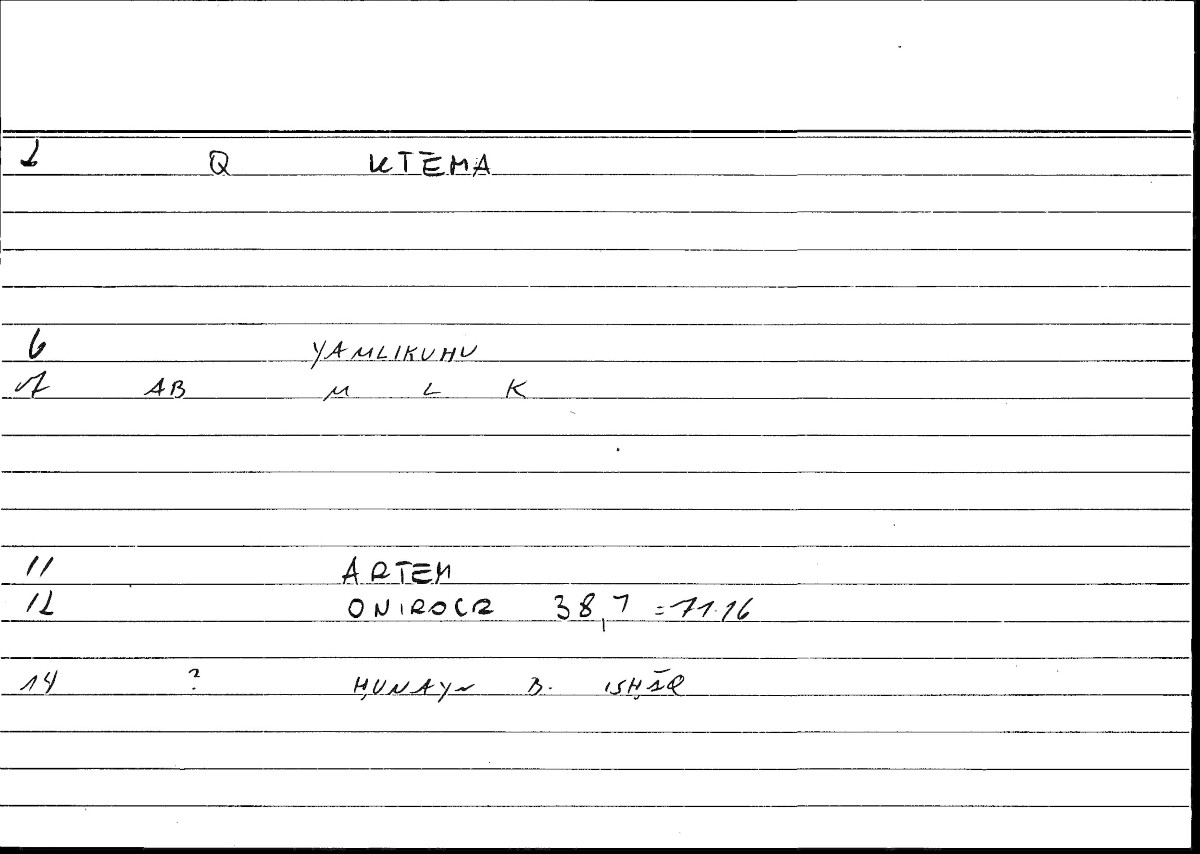 2 Q KTĒMA
6 YAMLIKUHU
7 AB M L K
11 ARTEM
12 ONIROCR 38,7 = 71.16
14 ? ḤUNAYN B. ISḤĀQ